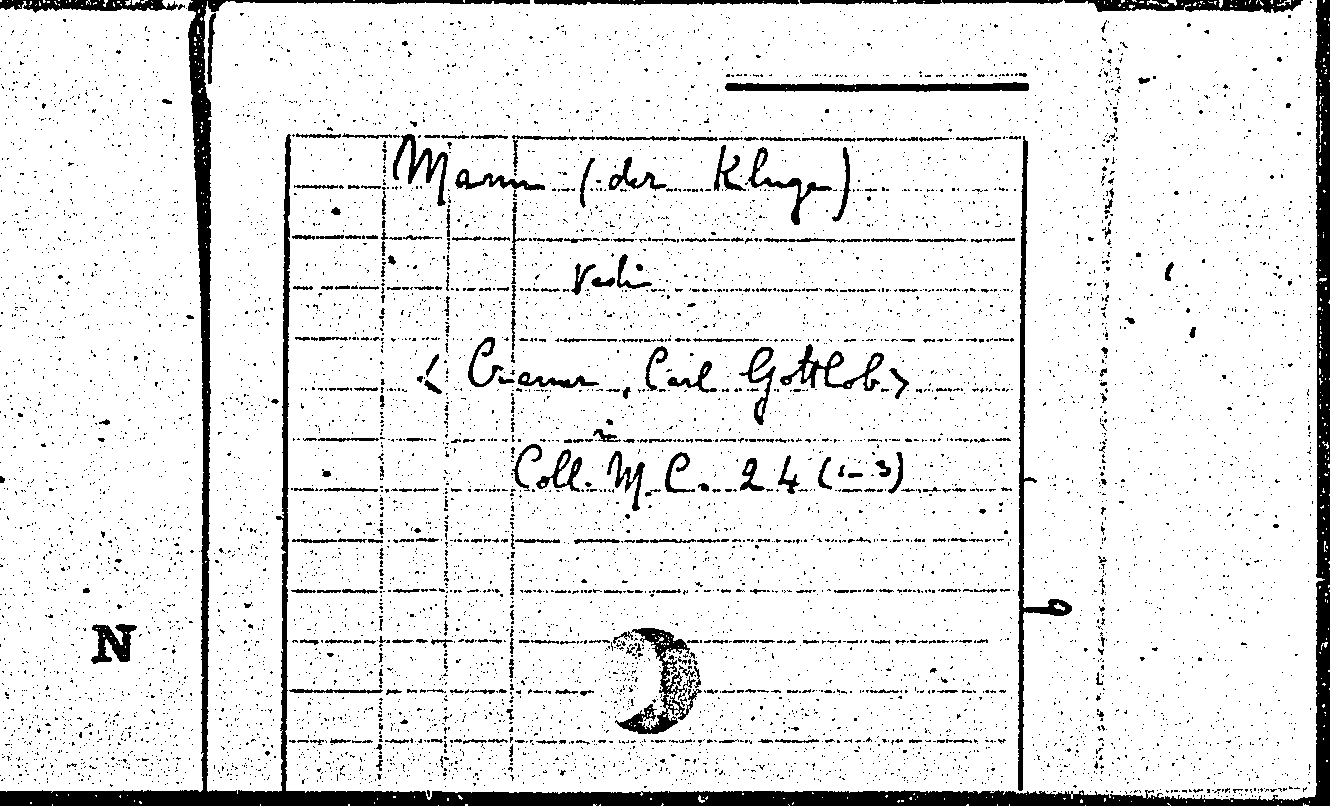 Mann (der Kluge)
vedi
< Cramer, Carl Gottlob>
in
Coll. M. C. 24 (1-3)
N